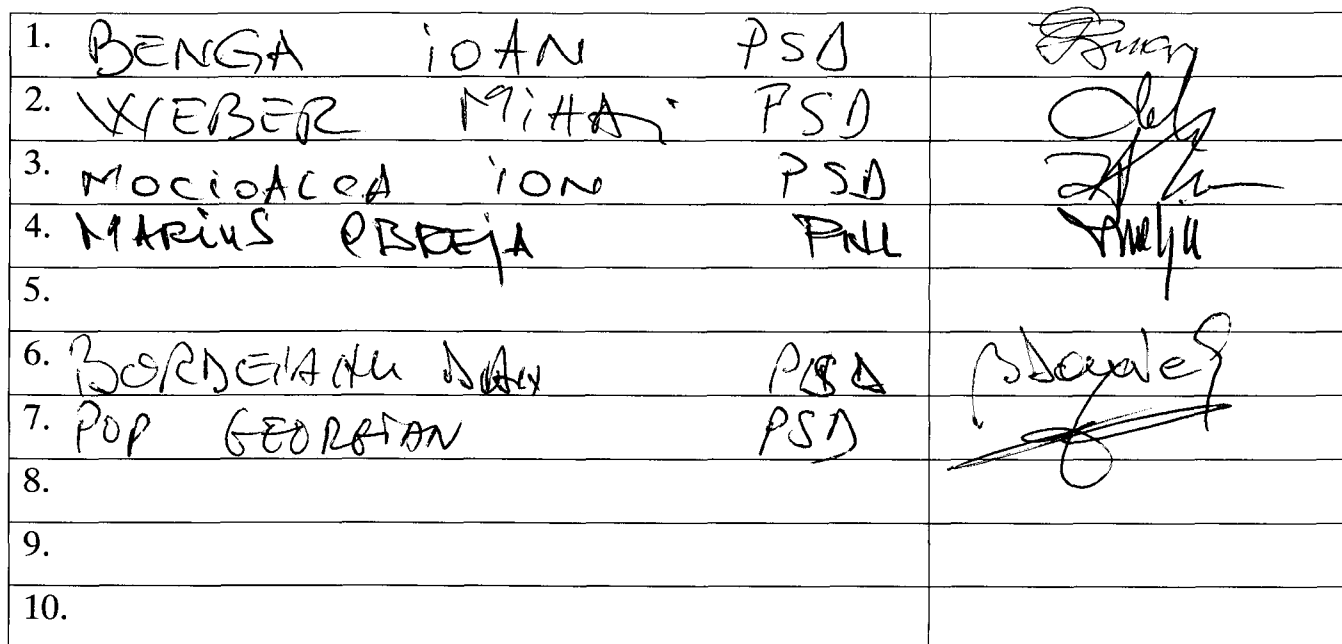 1. BENGA IOAN PSD
2. WEBER MIHAI PSD
3. MOCIOALCA ION PSD
4. MARIUS OBREJA PNL
5.
6. BORDEIANU DAN PSD
7. POP GEORGIAN PSD
8.
9.
10.